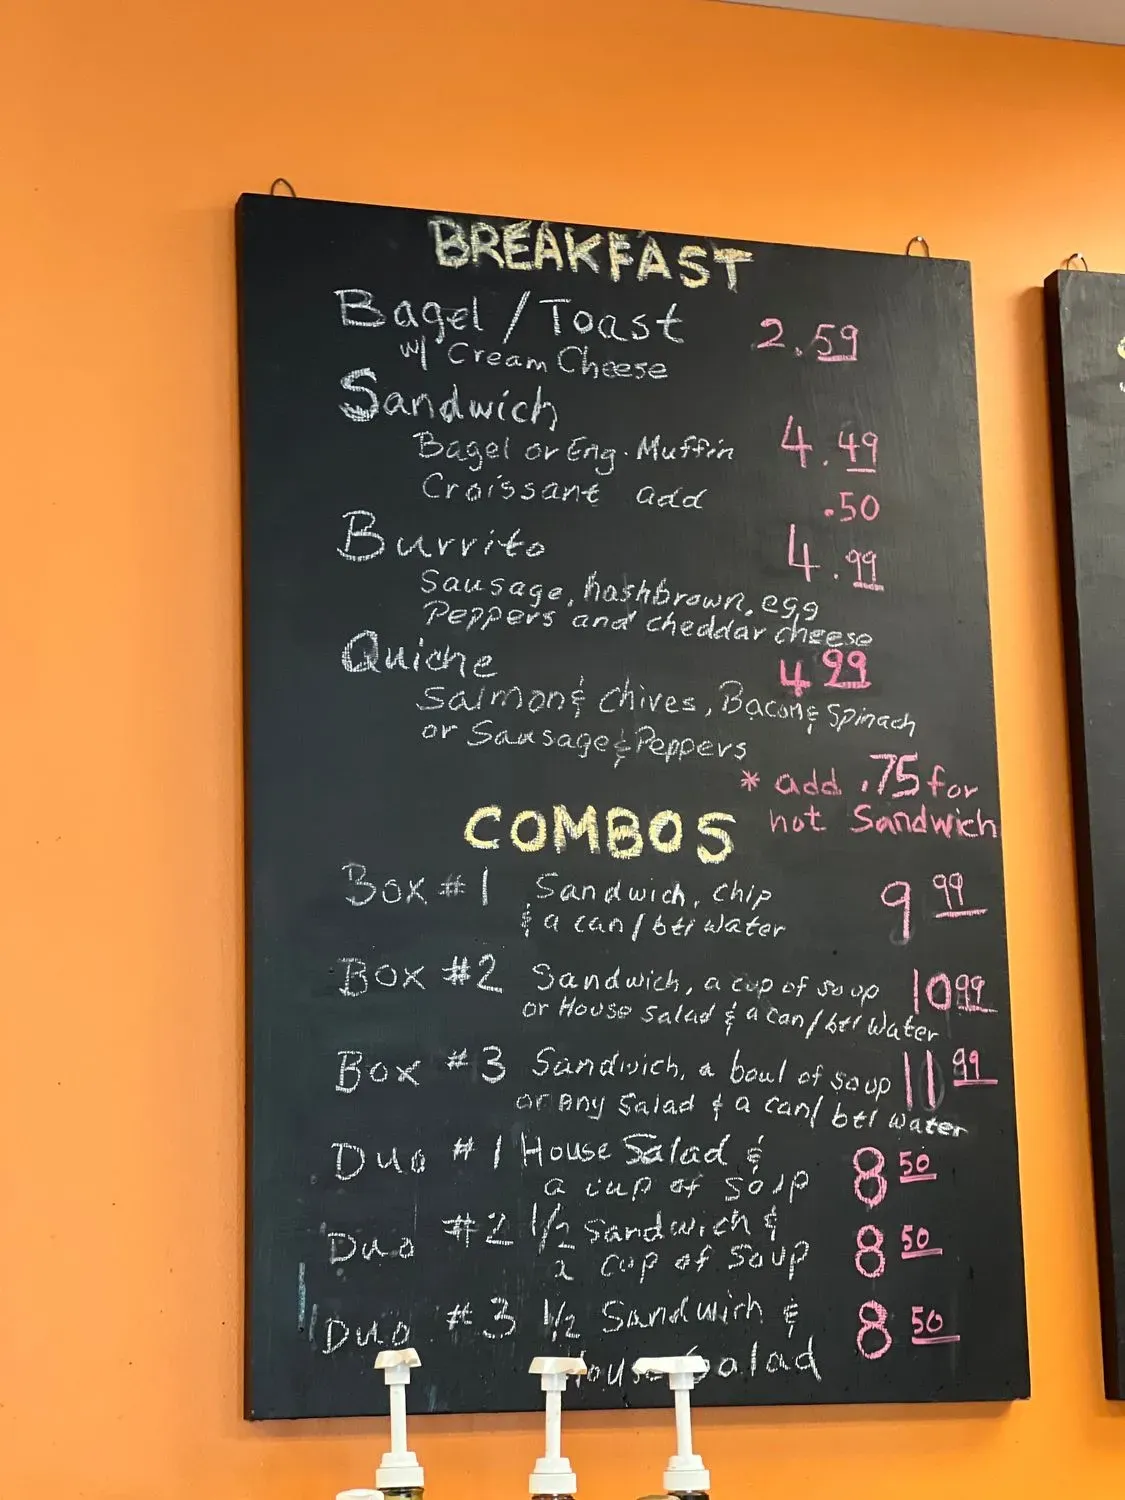 BREAKFAST
Bagel / Toast 2.59
w/ Cream Cheese
Sandwich
Bagel or Eng. Muffin 4.49
Croissant add .50
Burrito 4.99
Sausage, hashbrown, egg
Peppers and cheddar cheese
Quiche 4 99
Salmon & Chives, Bacon & Spinach
or Sausage & Peppers
* add .75 for
hot Sandwich
COMBOS
Box #1 Sandwich, chip 9 99
& a can/btl water
Box #2 Sandwich, a cup of soup 10 99
or House Salad & a can/btl Water
Box #3 Sandwich, a boul of soup 11 99
or Any Salad & a can/ btl water
Duo #1 House Salad & 8 50
a cup of soup
Duo #2 1/2 Sandwich & 8 50
a cup of soup
Duo #3 1/2 Sandwich & 8 50
House Salad